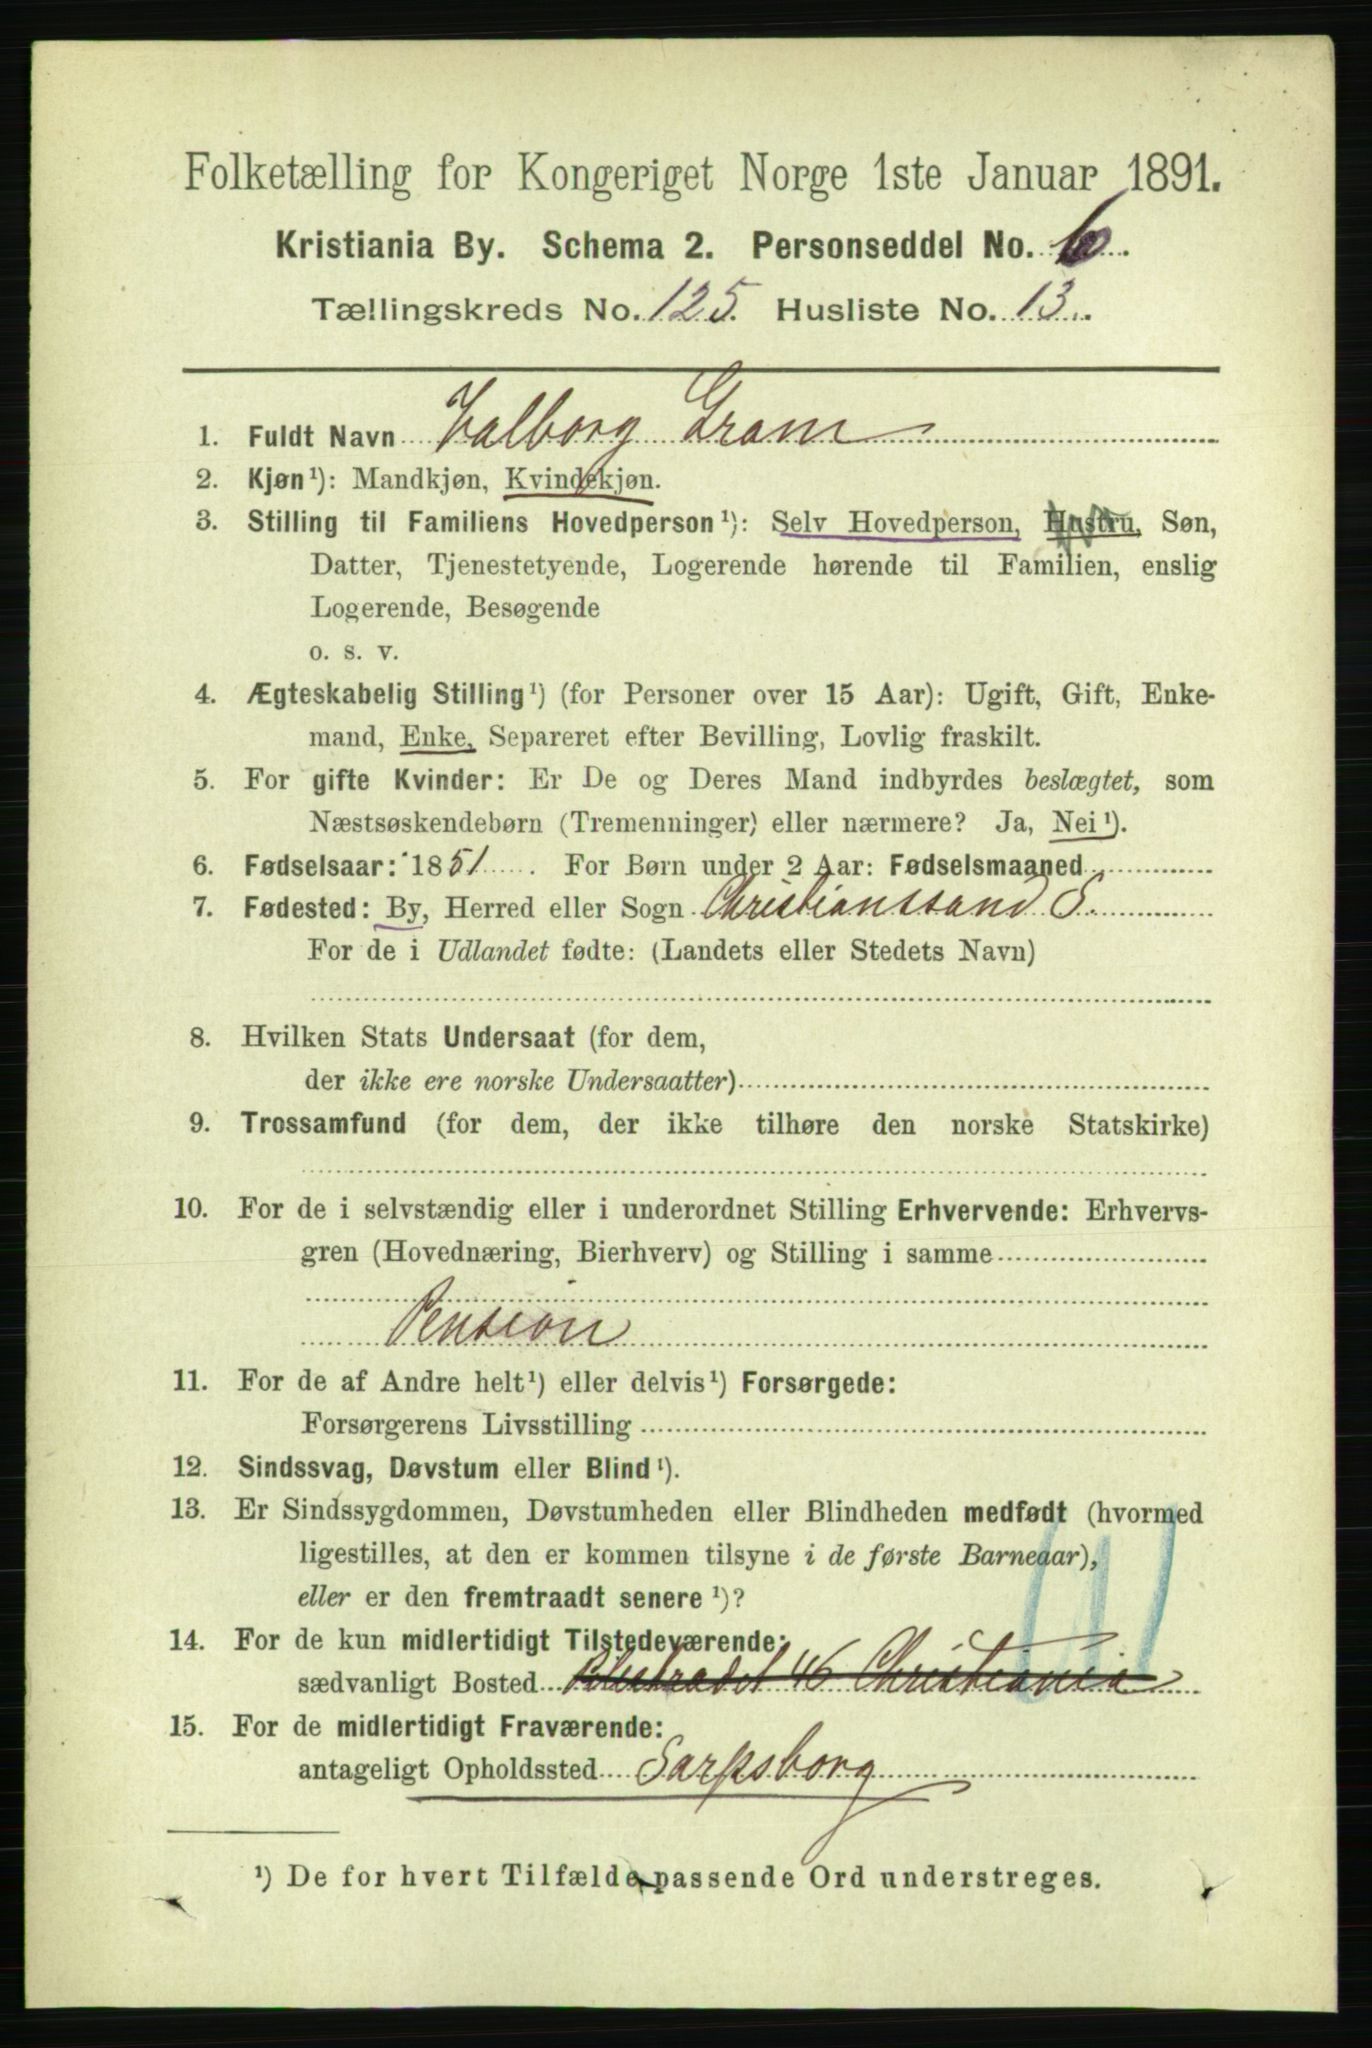 Folketælling for Kongeriget Norge 1ste Januar 1891.
Kristiania By. Schema 2. Personseddel No. 6.
Tællingskreds No. 125. Husliste No. 13.
1. Fuldt Navn Valborg Gram
2. Kjøn¹): Mandkjøn, Kvindekjøn.
3. Stilling til Familiens Hovedperson¹): Selv Hovedperson, Hustru, Søn,
Datter, Tjenestetyende, Logerende hørende til Familien, enslig
Logerende, Besøgende
o. s. v.
4. Ægteskabelig Stilling¹) (for Personer over 15 Aar): Ugift, Gift, Enke-
mand, Enke, Separeret efter Bevilling, Lovlig fraskilt.
5. For gifte Kvinder: Er De og Deres Mand indbyrdes beslægtet, som
Næstsøskendebørn (Tremenninger) eller nærmere? Ja, Nei¹).
6. Fødselsaar: 1851. For Børn under 2 Aar: Fødselsmaaned
7. Fødested: By, Herred eller Sogn Christianssand S.
For de i Udlandet fødte: (Landets eller Stedets Navn)
8. Hvilken Stats Undersaat (for dem,
der ikke ere norske Undersaatter)
9. Trossamfund (for dem, der ikke tilhøre den norske Statskirke)
10. For de i selvstændig eller i underordnet Stilling Erhvervende: Erhvervs-
gren (Hovednæring, Bierhverv) og Stilling i samme
Pension
11. For de af Andre helt¹) eller delvis¹) Forsørgede:
Forsørgerens Livsstilling
12. Sindssvag, Døvstum eller Blind¹).
13. Er Sindssygdommen, Døvstumheden eller Blindheden medfødt (hvormed
ligestilles, at den er kommen tilsyne i de første Barneaar),
eller er den fremtraadt senere¹)?
14. For de kun midlertidigt Tilstedeværende:
sædvanligt Bosted Pilestrædet 46 Christiania
15. For de midlertidigt Fraværende:
antageligt Opholdssted Sarpsborg
¹) De for hvert Tilfælde passende Ord understreges.